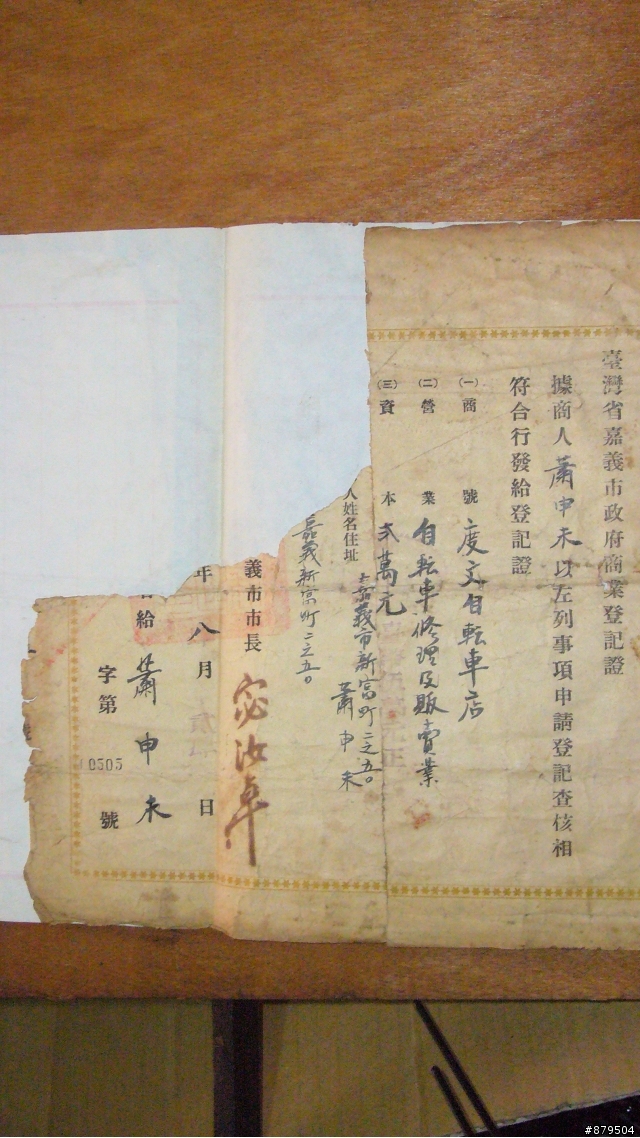 臺灣省嘉義市政府商業登記證
據商人蕭申未以左列事項申請登記查核相
符合行發給登記證
(一)商號 度文自転車店
(二)營業 自転車修理及販賣業
(三)資本 弍萬元
人姓名住址 嘉義市新富町二之五〇 蕭申未
嘉義新富町二之五〇
義市市長 宓汝卓
年八月 日
給 蕭申未
字第 00505 號
#879504